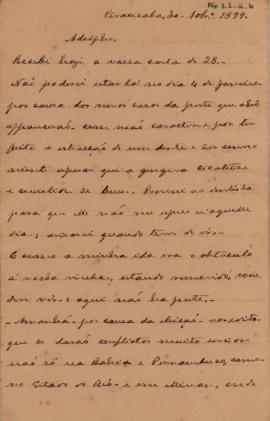 PG 2.2.2.6
Piracicaba, 30 Nobr.º 1899.
Adolpho,
Recebi hoje a vossa carta de 28.
Não poderei estar lá no dia 4 de Janeiro
por causa dos novos casos da peste que ahi
appareceram com mao caracter e por ter
feito a extracção de um dente e ser conve-
niente esperar que a gengiva cicatrise
e de bem. Preveni ao dentista
para que elle não me espere n'aquelle
dia; avisarei quando tiver de ir.
E como a minha ida era o obstaculo
á vossa vinda, estando removido, po-
deis vir: aqui não ha peste.
- Amanhã por causa da eleição acredito
que se darão conflictos muito serios
não só na Bahia e Pernambuco, como
no Estado do Rio e em Minas, onde